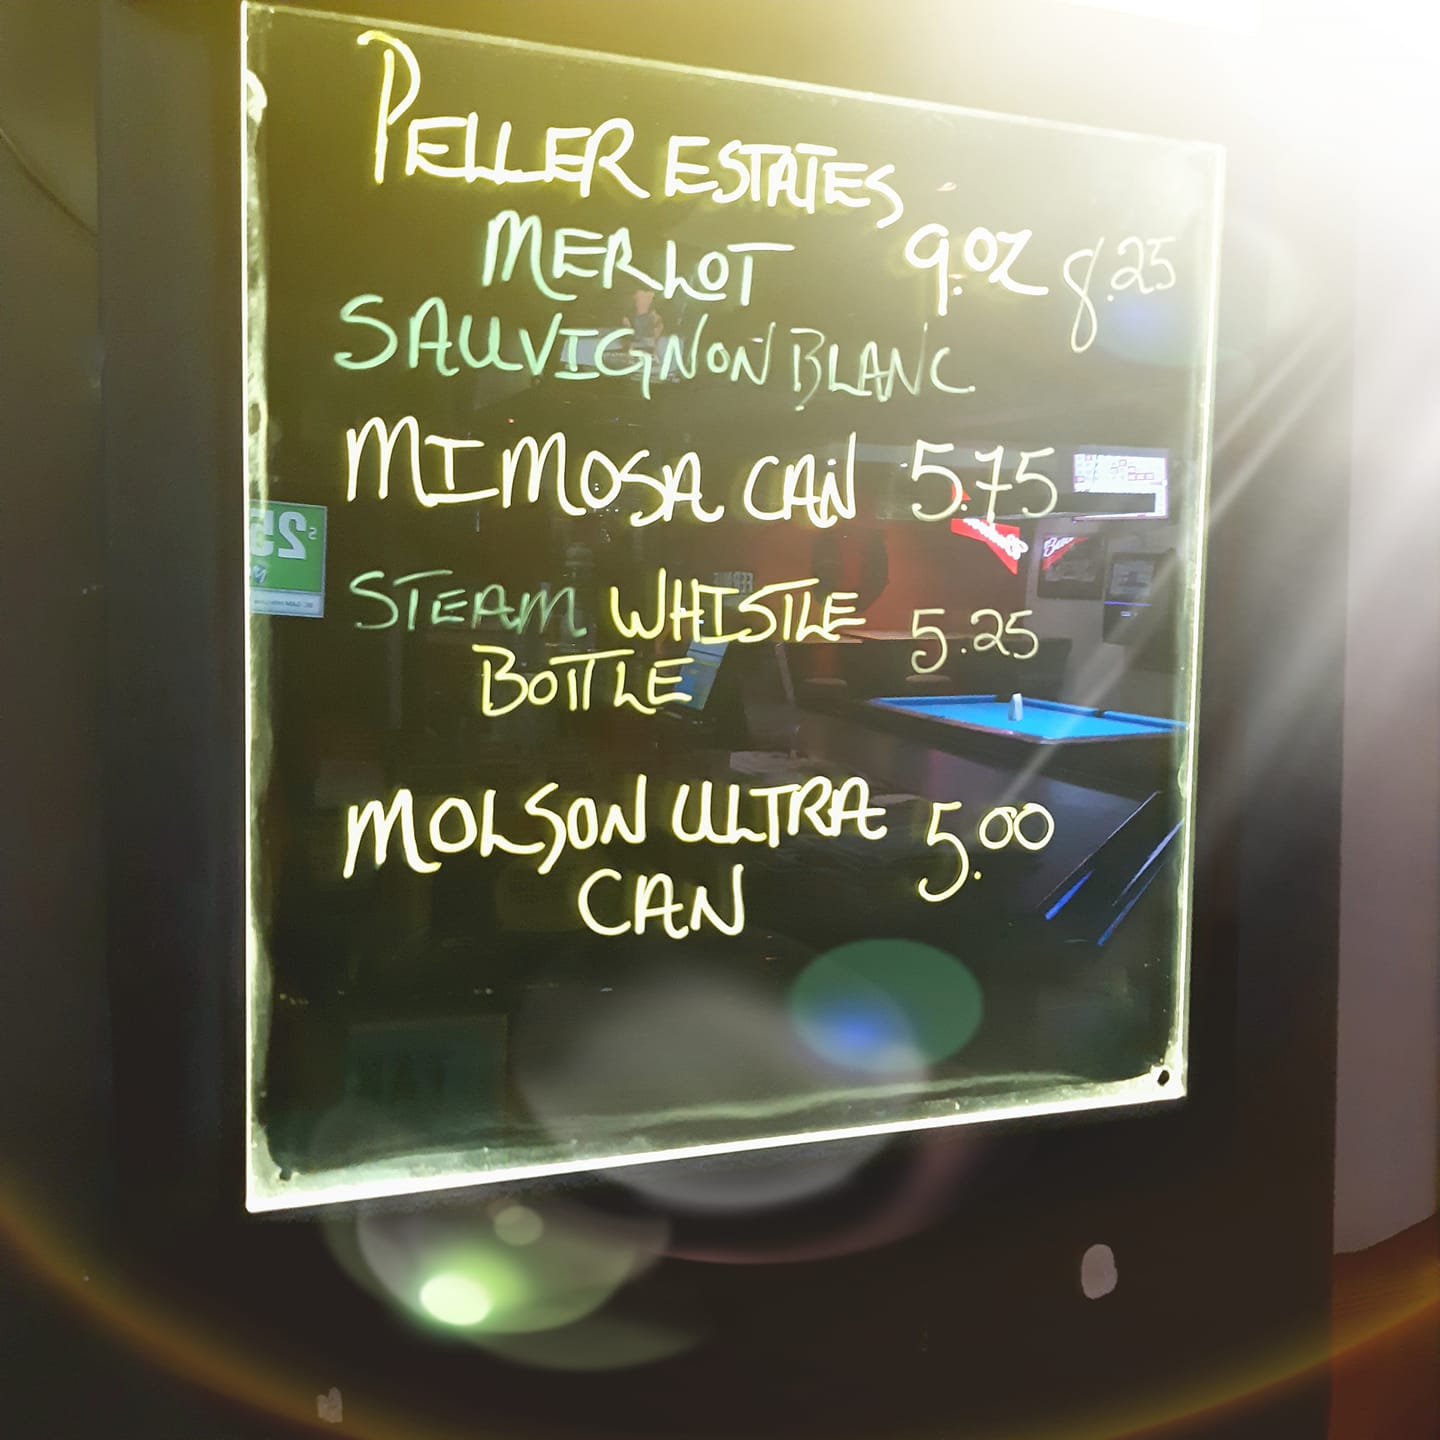 PELLER ESTATES
MERLOT 9.OZ 8.25
SAUVIGNON BLANC
MIMOSA CAN 5.75
STEAM WHISTLE 5.25
BOTTLE
MOLSON ULTRA 5.00
CAN
25